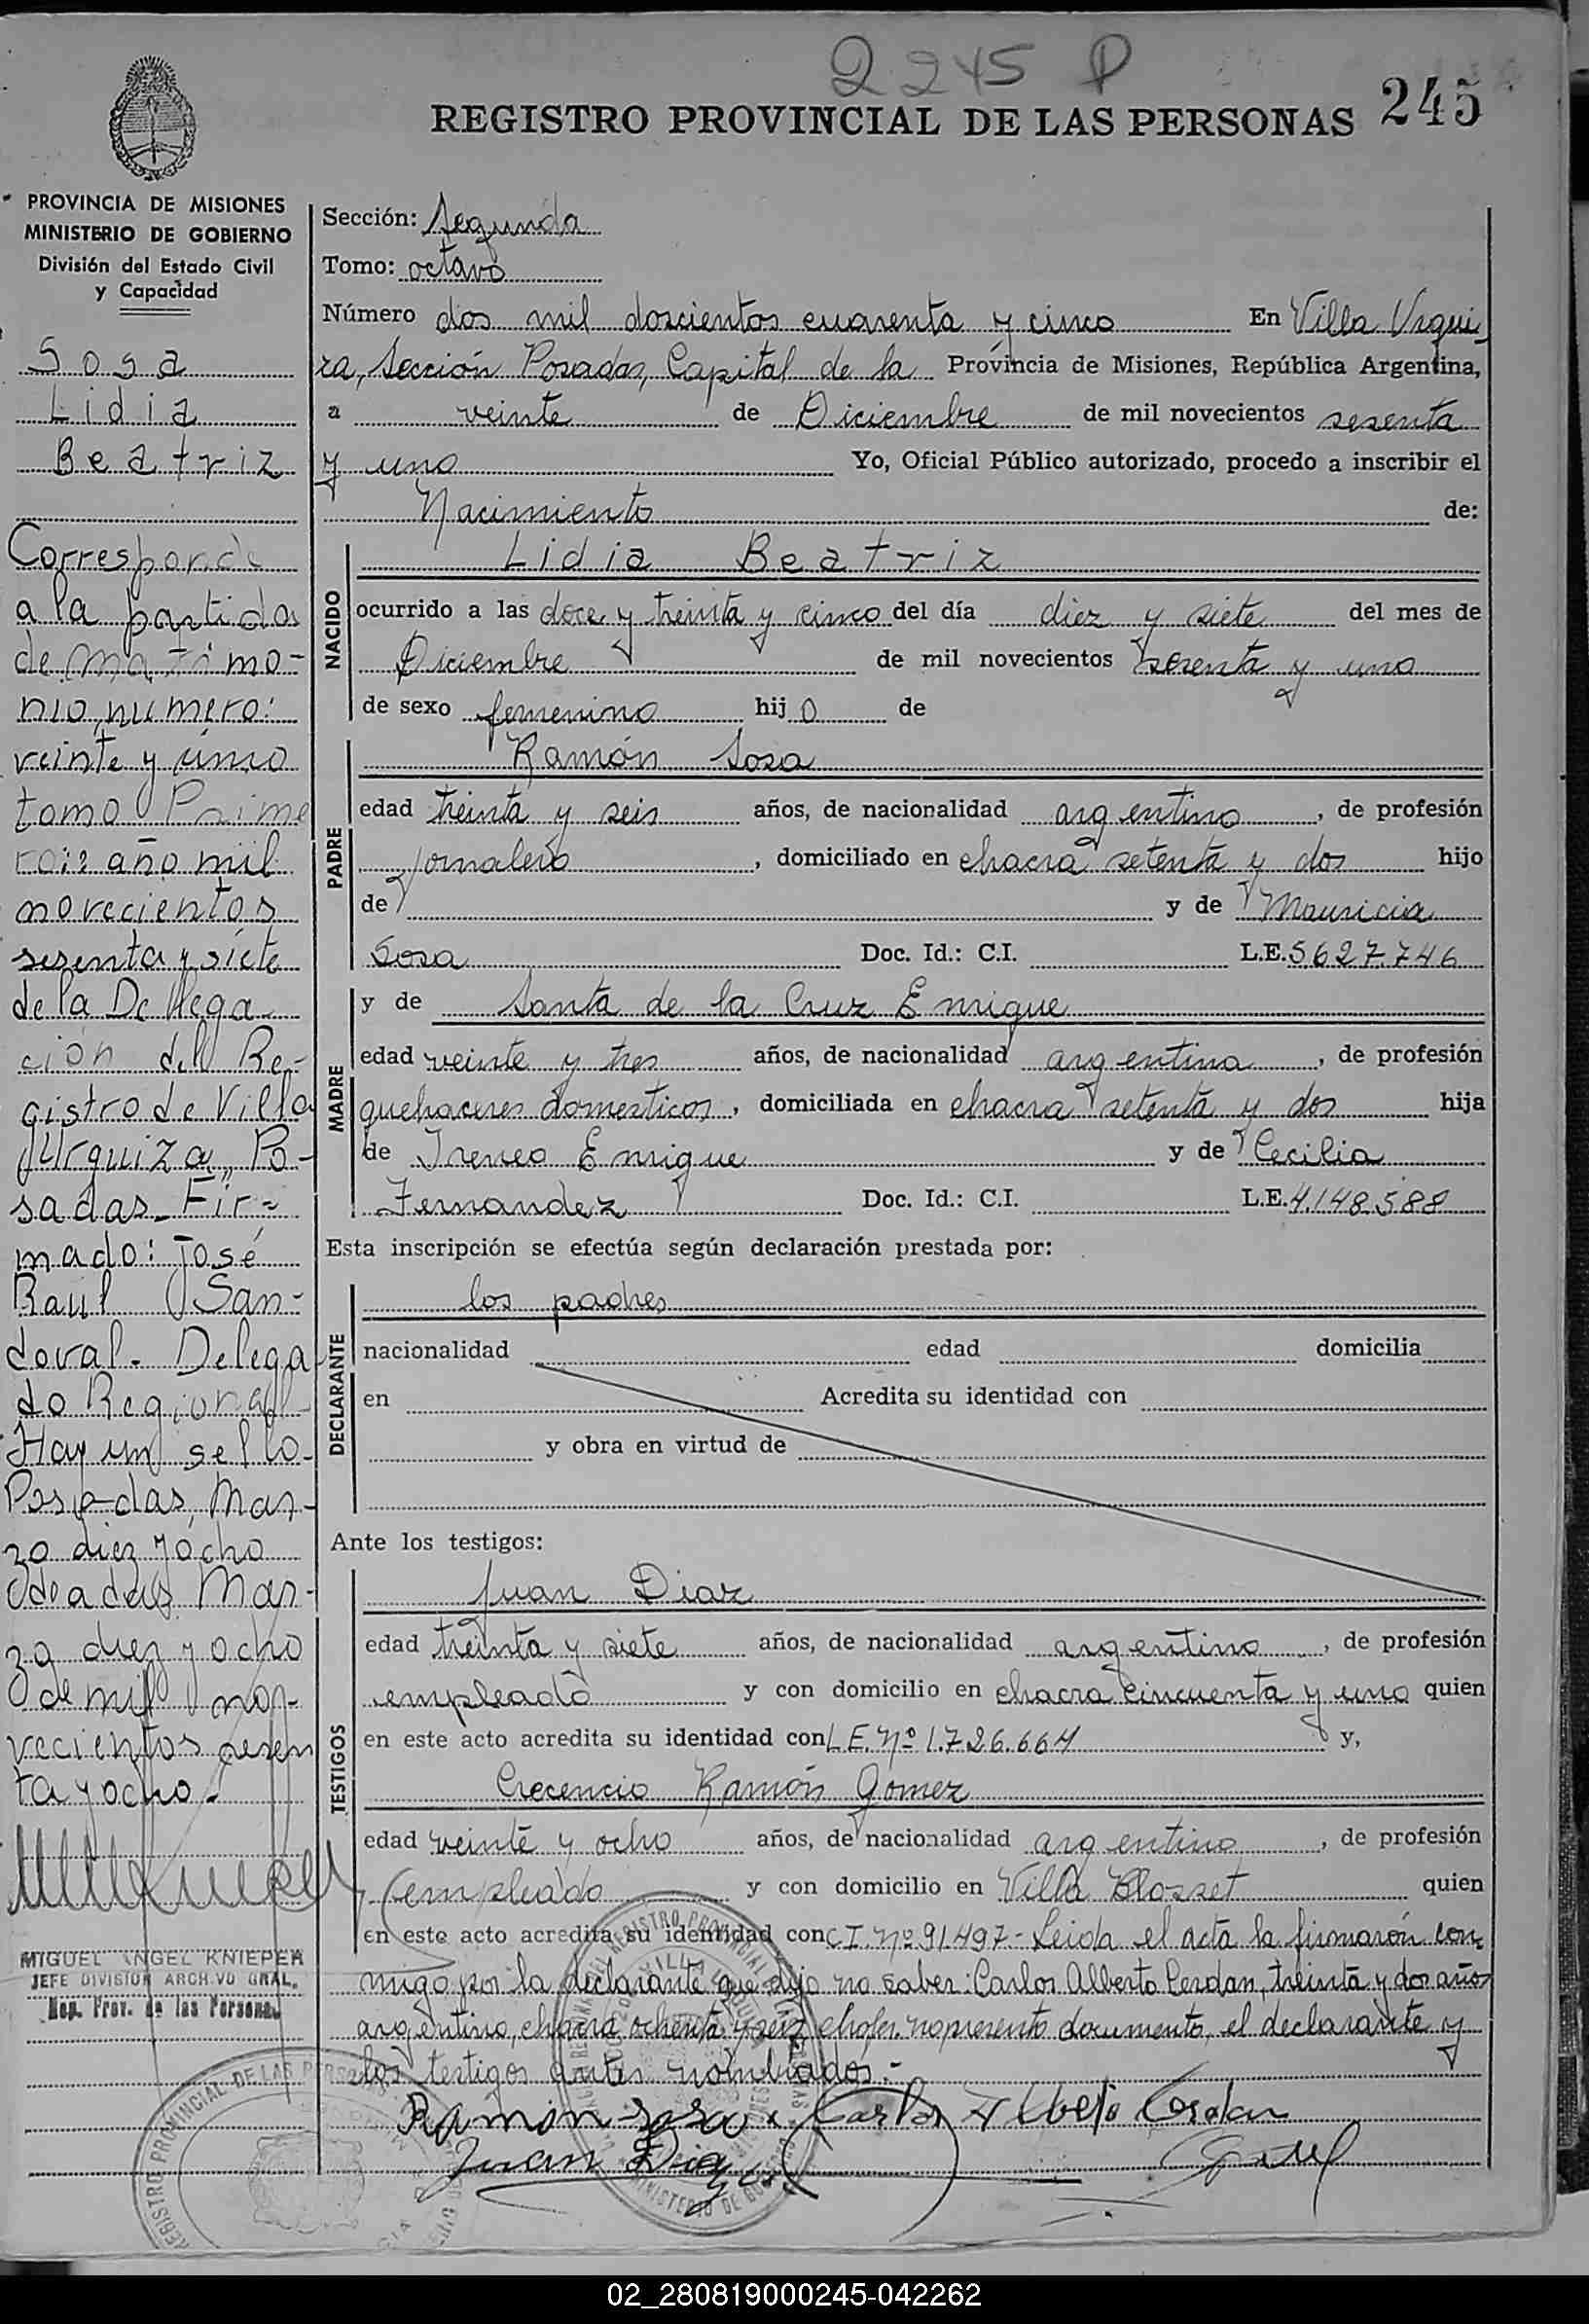 2245 P
REGISTRO PROVINCIAL DE LAS PERSONAS 245
PROVINCIA DE MISIONES
MINISTERIO DE GOBIERNO
División del Estado Civil
y Capacidad
Sosa
Lidia
Beatriz
Corresponde
a la partida
de matrimo-
nio, numero:
veinte y uno
tomo Prime
ro: año mil
novecientos
sesenta y siete
de la Delega-
ción del Re-
gistro de Villa
Urquiza, Po-
sadas. Fir-
mado: José
Raul San-
doval. Delega
do Regional
Hay un sello.
Posadas, Mar-
zo diez y ocho
Mar-
zo diez y ocho
de mil no-
vecientos sesen
ta y ocho.
MIGUEL ANGEL KNIEPER
JEFE DIVISION ARCHIVO GRAL.
Reg. Prov. de las Personas
Sección: Segunda
Tomo: octavo
Número dos mil doscientos cuarenta y cinco En Villa Urqui-
za, Sección Posadas, Capital de la Provincia de Misiones, República Argentina,
a veinte de Diciembre de mil novecientos sesenta
y uno Yo, Oficial Público autorizado, procedo a inscribir el
Nacimiento de:
NACIDO
Lidia Beatriz
ocurrido a las doce y treinta y cinco del día diez y siete del mes de
Diciembre de mil novecientos sesenta y uno
de sexo femenino hij o de
PADRE
Ramón Sosa
edad treinta y seis años, de nacionalidad argentino, de profesión
jornalero, domiciliado en chacra setenta y dos hijo
de y de Mauricia
Sosa Doc. Id.: C.I. L.E. 5627.746
MADRE
y de Santa de la Cruz Enrique
edad veinte y tres años, de nacionalidad argentina, de profesión
quehaceres domesticos, domiciliada en chacra setenta y dos hija
de Ireneo Enrique y de Cecilia
Fernandez Doc. Id.: C.I. L.E. 4.148.588
Esta inscripción se efectúa según declaración prestada por:
DECLARANTE
los padres
nacionalidad edad domicilia
en Acredita su identidad con
y obra en virtud de
Ante los testigos:
TESTIGOS
Juan Diaz
edad treinta y siete años, de nacionalidad argentino, de profesión
empleado y con domicilio en chacra cincuenta y uno quien
en este acto acredita su identidad con L.E. nº 1.726.664 y,
Crecencio Ramón Gomez
edad veinte y ocho años, de nacionalidad argentino, de profesión
empleado y con domicilio en Villa Blosset quien
en este acto acredita su identidad con C.I. nº 91.497- Leida el acta la firmaron con-
migo por la declarante que dijo no saber: Carlos Alberto Cerdan, treinta y dos años
argentino, chacra ochenta y seis chofer no presento documento, el declarante y
los testigos antes nombrados.-
Ramon sosa Carlos Alberto Cerdan
Juan Diaz
REGISTRO PROVINCIAL DE LAS PERSONAS
02_280819000245-042262